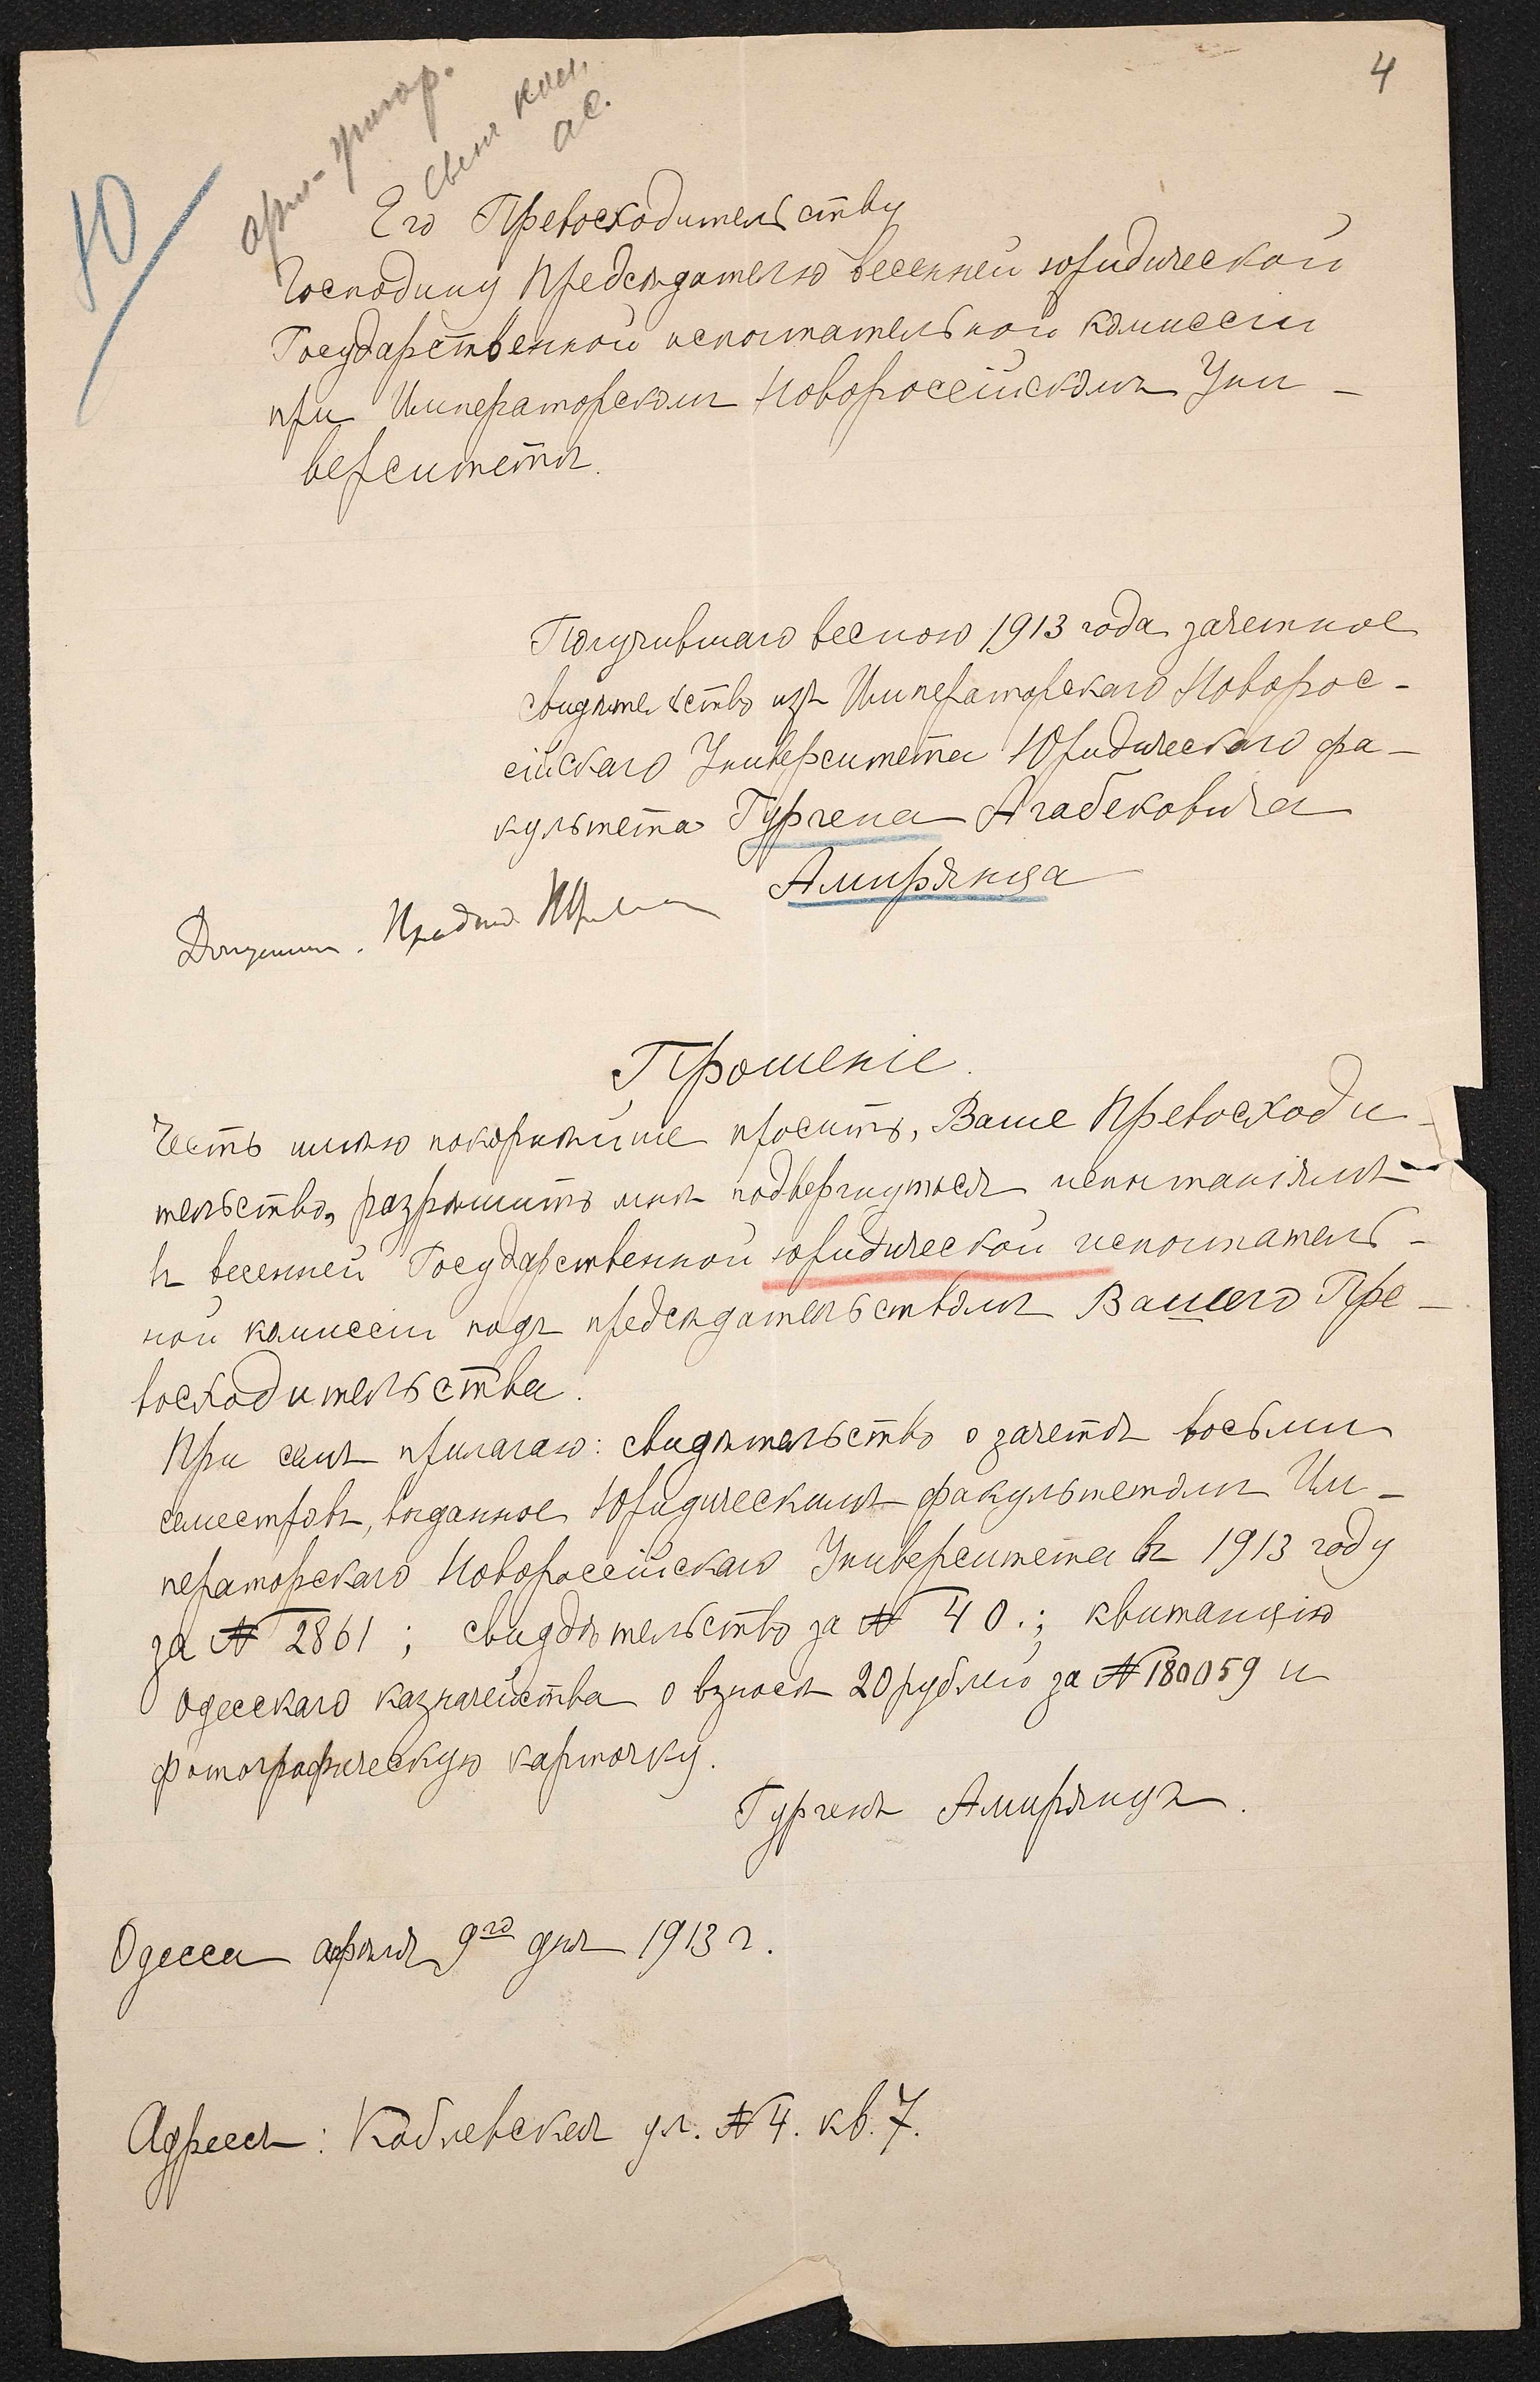 4
Ю
арм-григор.
Его Превосходительству
Господину Предсѣдателю весенней юридической
Государственной испытательной комиссіи
при Императорскомъ Новороссійскомъ Уни-
верситетѣ.
Получившаго весною 1913 года зачетное
свидѣтельство изъ Императорскаго Новорос-
сійскаго Университета Юридическаго фа-
культета Гургена Агабековича
Амирянца
Допущенъ.
Прошеніе.
Честь имѣю покорнѣйше просить, Ваше Превосходи-
тельство, разрѣшить мнѣ подвергнуться испытаніямъ
въ весенней Государственной юридической испытатель-
ной комиссіи подъ предсѣдательствомъ Вашего Пре-
восходительства.
При семъ прилагаю: свидѣтельство о зачетѣ восьми
семестровъ, выданное Юридическимъ факультетомъ Им-
ператорскаго Новороссійскаго Университета въ 1913 году
за № 2861; свидѣтельство за № 40.; квитанцію
Одесскаго казначейства о взносѣ 20 рублей за № 180059 и
фотографическую карточку.
Гургенъ Амирянцъ.
Одесса апрѣля 9го дня 1913 г.
Адресъ: Коблевская ул. № 4. кв. 7.